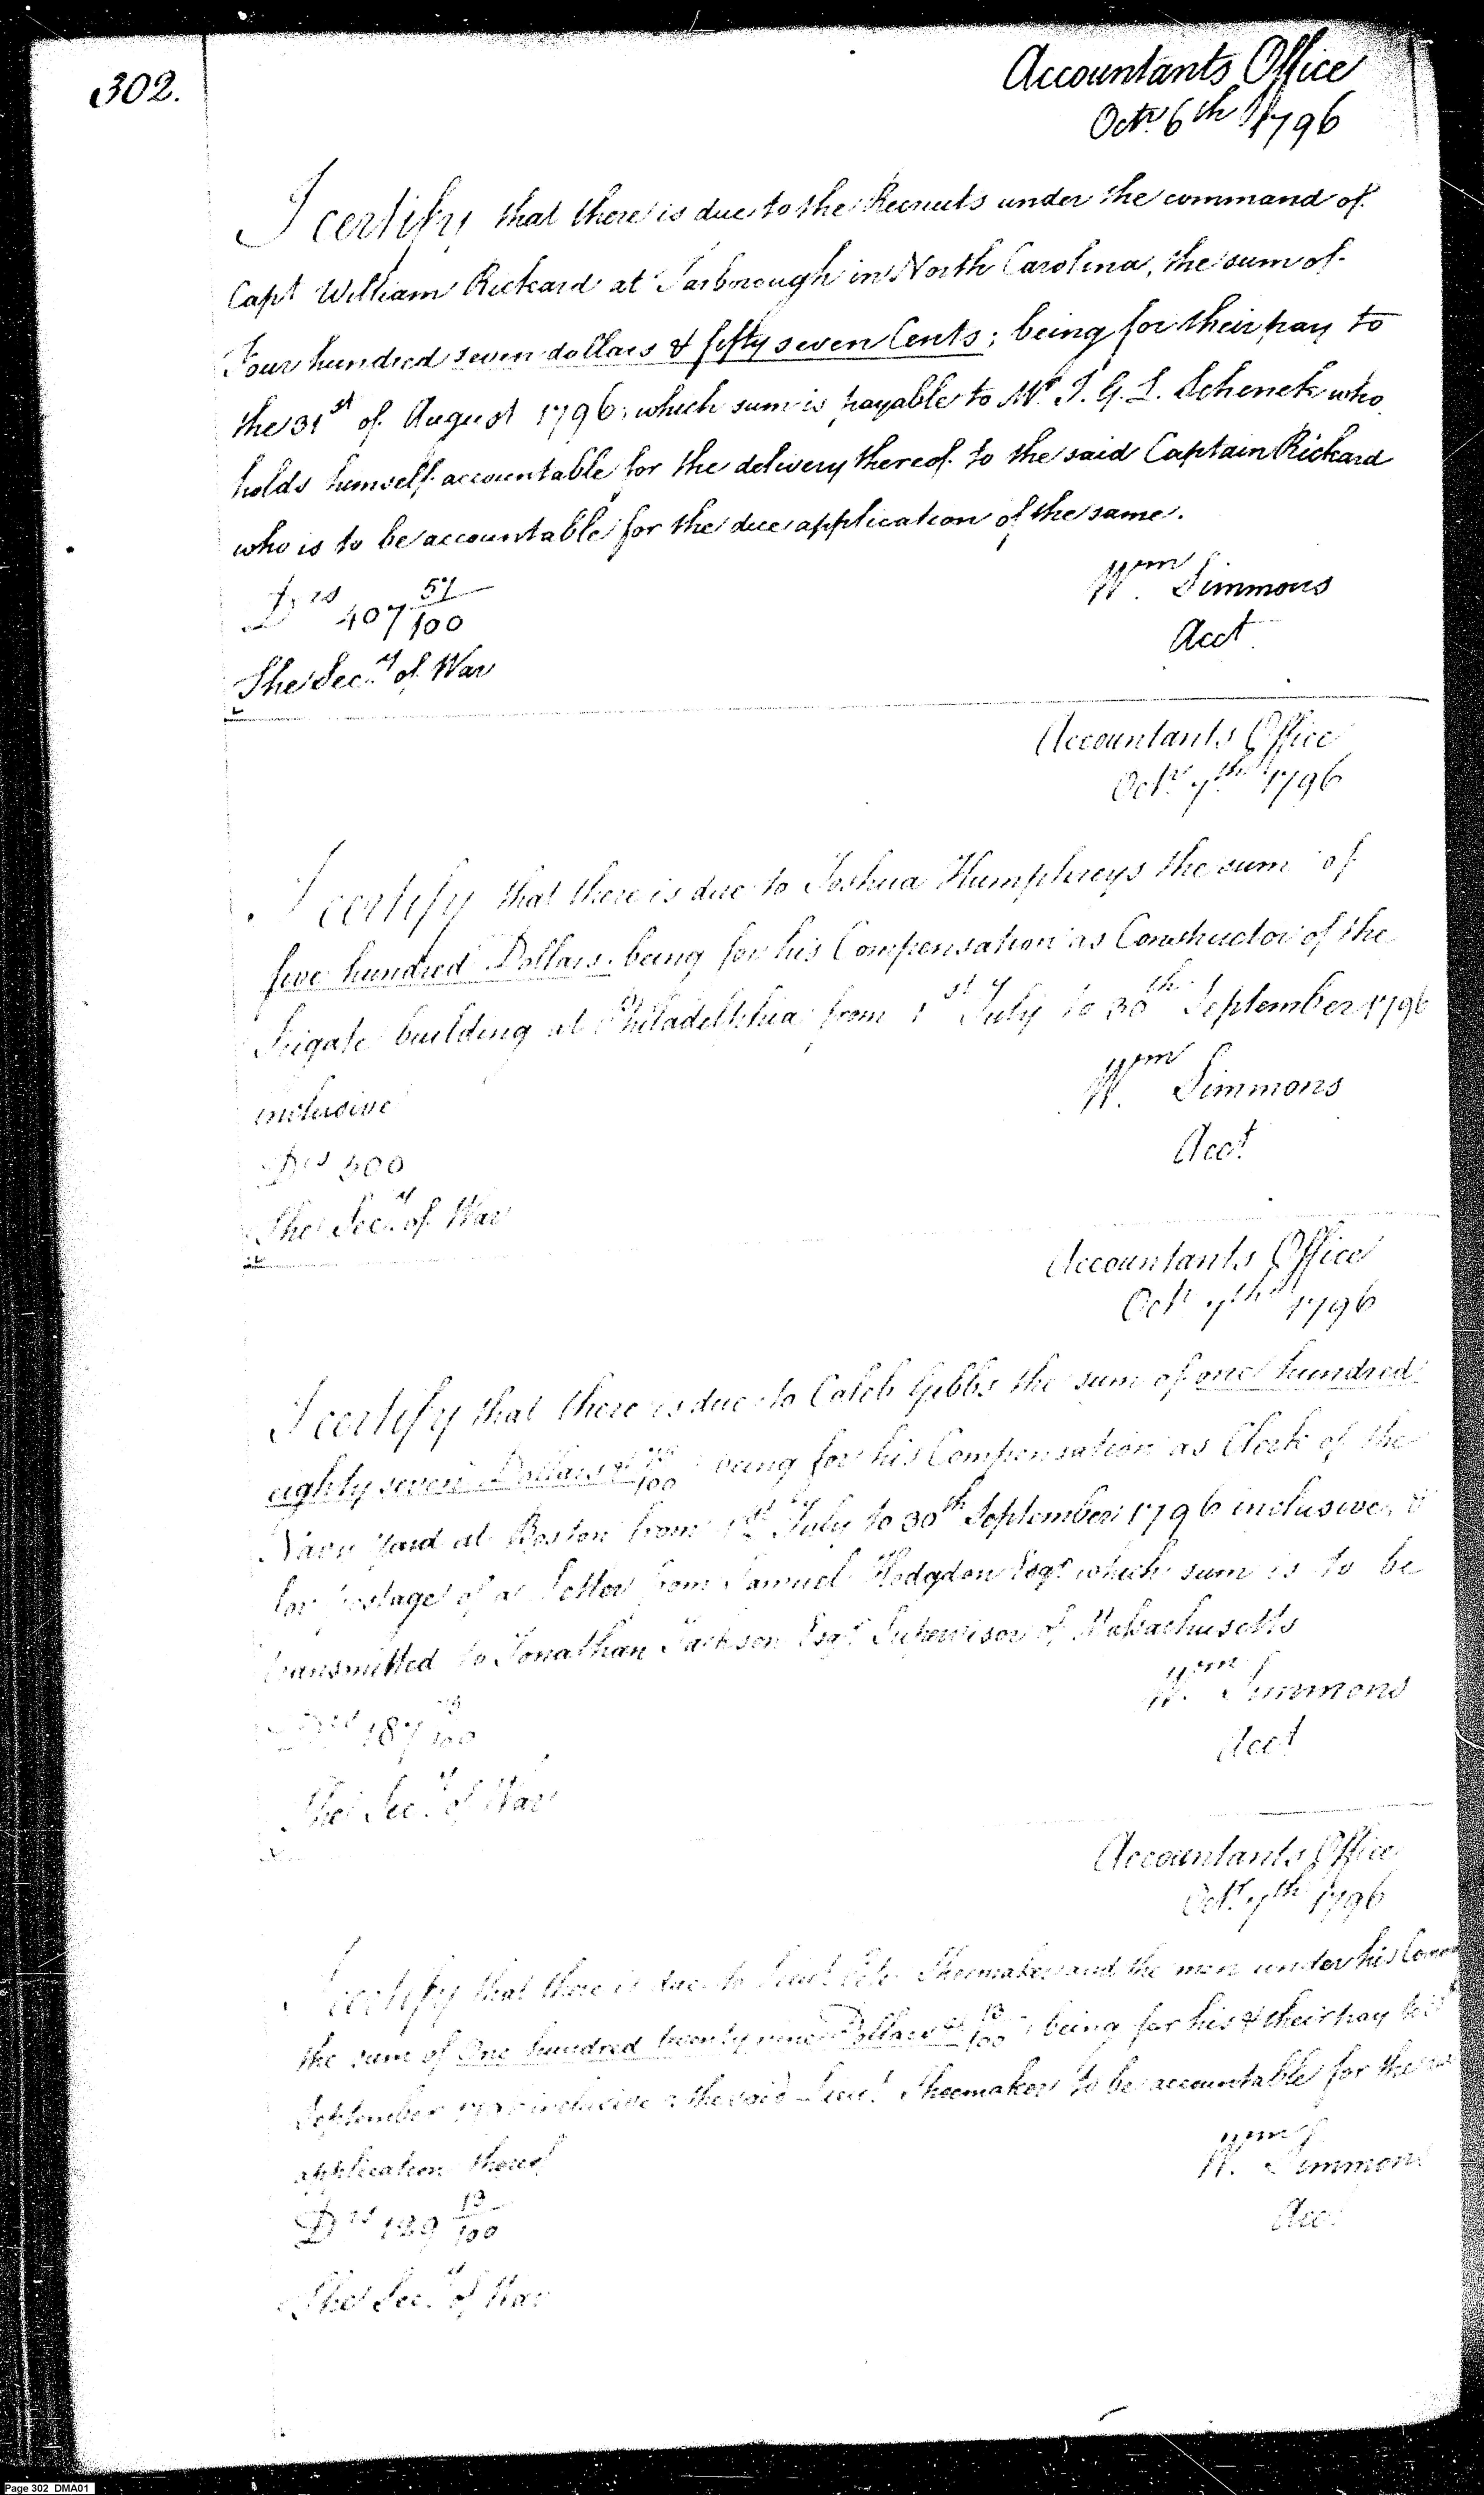 302.
Accountants Office
Octr 6th 1796
I certify that there is due to the Recruits under the command of
Capt William Rickard at Tarborough in North Carolina, the sum of
Four hundred seven dollars & fifty seven Cents; being for their pay to
the 31st of August 1796; which sum is payable to Mr. P. G. L. Schenck who
holds himself accountable for the delivery thereof to the said Captain Rickard
who is to be accountable for the due application of the same.
Wm Simmons
Drs 407 57/100
Acct
The Secy of War
Accountants Office
Octr 7th 1796
I certify that there is due to Joshua Humphreys the sum of
five hundred Dollars; being for his Compensation as Constructor of the
Frigate building at Philadelphia from 1st July to 30th September 1796
inclusive
Wm Simmons
Drs 500
Acct
The Secy of War
Accountants Office
Octr 7th 1796
I certify that there is due to Caleb Gibbs the sum of one hundred
eighty seven Dollars & /100 being for his Compensation as Clerk of the
Navy Yard at Boston from 1st July to 30th September 1796 inclusive, &
for postage of a Letter from Samuel Hodgdon Esqr which sum is to be
transmitted to Jonathan Jackson Esqr Supervisor of Massachusetts
Wm Simmons
Drs 187 /100
Acct
The Secy of War
Accountants Office
Octr 7th 1796
I certify that there is due to Lieut Shoemaker and the men under his Comm
the sum of One hundred twenty nine Dollars & 13/100; being for his & their pay
September inclusive & the said Lieut. Shoemaker to be accountable for the
application thereof
Wm Simmons
Drs 129 13/100
Acct
The Secy of War
Page 302 DMA01